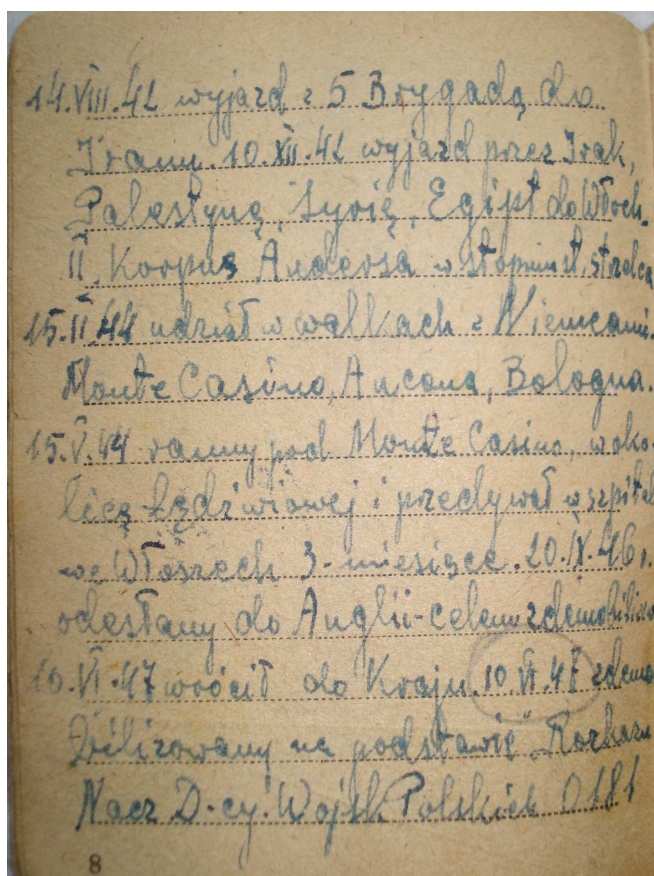 14.VIII.42 wyjazd z 5 Brygadą do
Iranu. 10.XII.42 wyjazd przez Irak,
Palestynę, Syrię, Egipt do Włoch.
II. Korpus Andersa w stopniu st. strzelca
15.II.44 udział w walkach z Niemcami.
Monte Casino, Ancona, Bologna.
15.V.44 ranny pod Monte Casino, w oko-
licę lędźwiowej i przebywał w szpital
we Włoszech 3-miesiące. 20.IX.46 r.
odesłany do Anglii-celem zdemobilizo
10.VI.47 wrócił do Kraju. 10.VI.47 zdemo
bilizowany na podstawie "Rozkazu
Nacz D-cy. Wojsk Polskich 0181
8